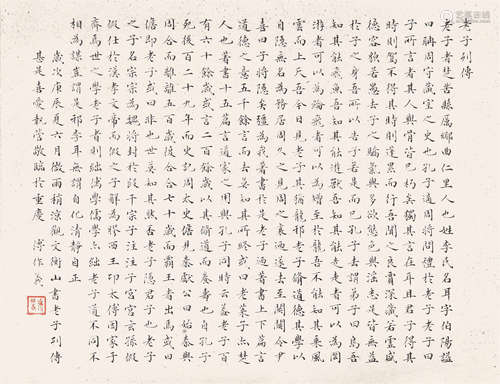 老子列傳
老子者楚苦縣厲鄉曲仁里人也姓李氏名耳字伯陽謚
曰聃周守藏室之史也孔子適周將問禮於老子老子曰
子所言者其人與骨皆已朽矣獨其言在耳且君子得其
時則駕不得其時則蓬累而行吾聞之良賈深藏若虛君子盛
德容貌若愚去子之驕氣與多欲態色與淫志是皆無益
於子之身吾所以告子若是而已孔子去謂弟子曰鳥吾
知其能飛魚吾知其能游獸吾知其能走走者可以為罔
游者可以為綸飛者可以為矰至於龍吾不能知其乘風
雲而上天吾今日見老子其猶龍邪老子脩道德其學以
自隱無名為務居周久之見周之衰迺遂去至關關令尹
喜曰子將隱矣彊為我著書於是老子迺著書上下篇言
道德之意五千餘言而去莫知其所終或曰老萊子亦楚
人也著書十五篇言道家之用與孔子同時云蓋老子百
有六十餘歲或言二百餘歲以其脩道而養壽也自孔子
死後百二十九年而史記周太史儋見秦獻公曰始秦與
周合而離離五百歲復合合七十歲而霸王者出焉或曰
儋即老子或曰非也世莫知其然否老子隱君子也老子
之子名宗宗為魏將封於段干宗子注注子宮宮玄孫假
假仕於漢孝文帝而假之子解為膠西王卬太傅因家于
齊焉世之學老子者則絀儒學儒學亦絀老子道不同不
相為謀豈謂是邪李耳無為自化清靜自正
歲次庚辰夏六月微雨稍涼觀文衡山書老子列傳
甚是喜愛執管敬臨於重慶 作義